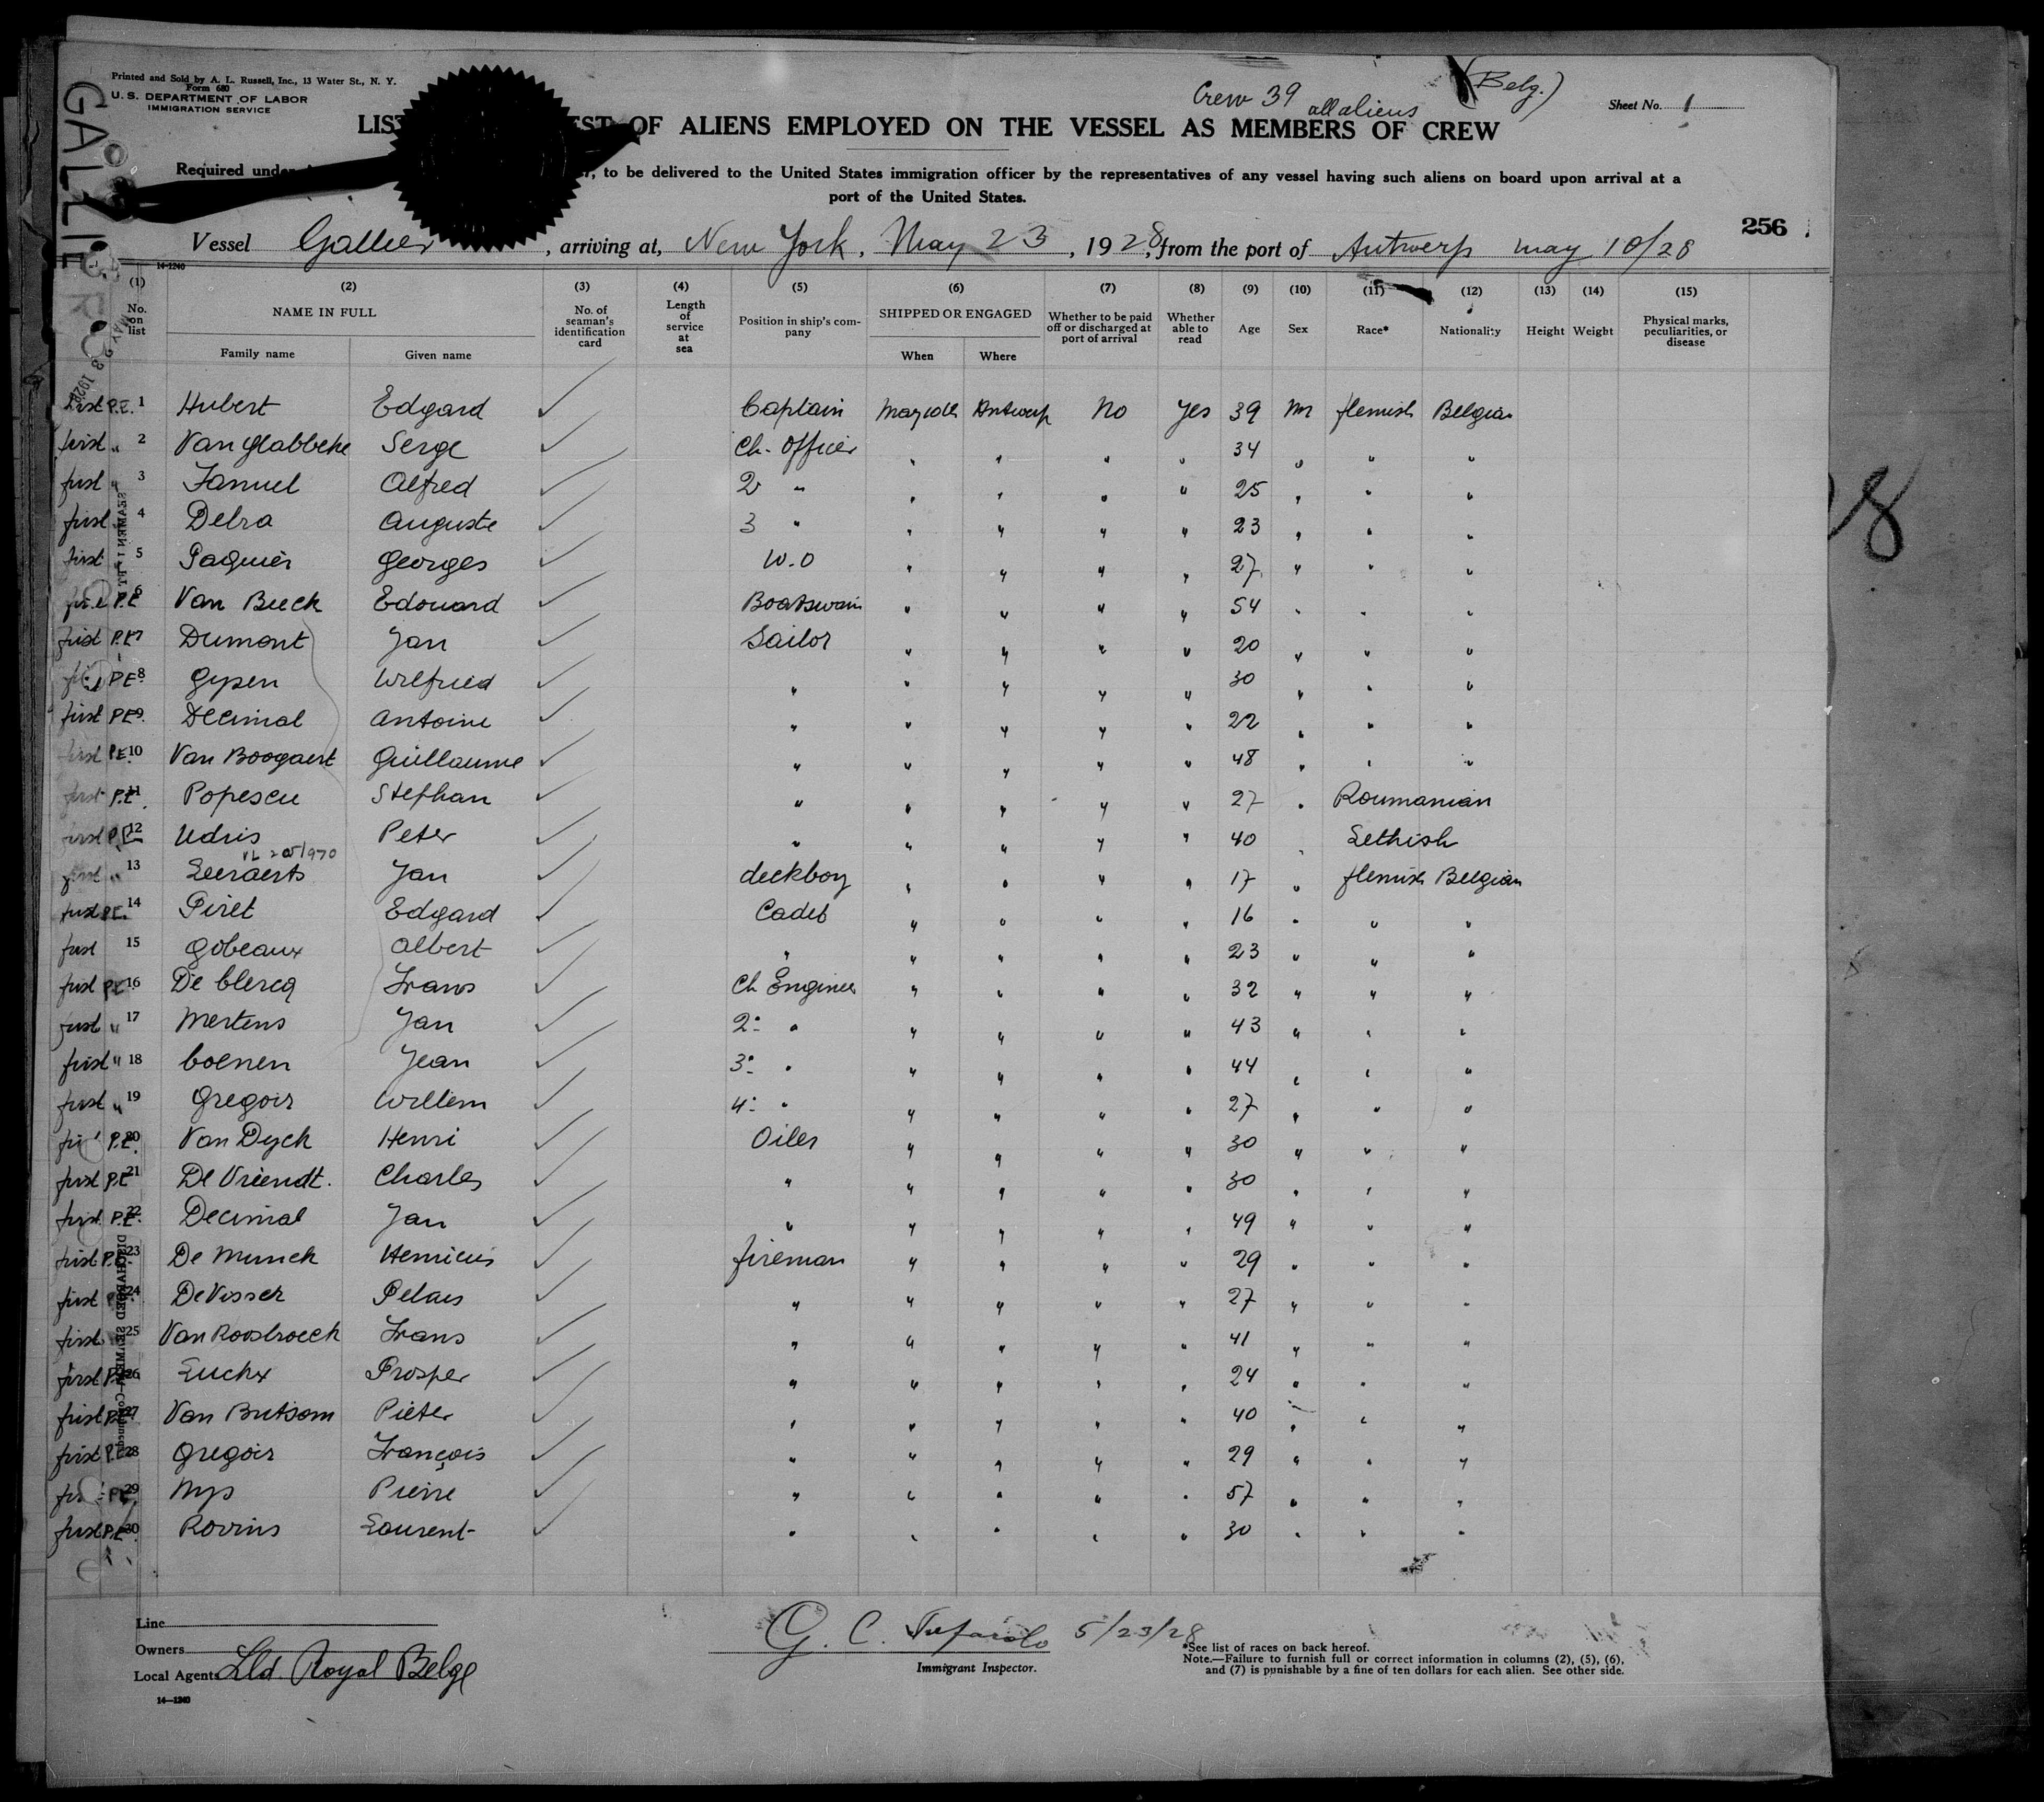 Printed and Sold by A. L. Russell, Inc., 13 Water St., N. Y.
Form 680
U. S. DEPARTMENT OF LABOR
IMMIGRATION SERVICE
GALLIE
Crew 39 all aliens (Belg.)
Sheet No. 1
LIS EST OF ALIENS EMPLOYED ON THE VESSEL AS MEMBERS OF CREW
Required under , to be delivered to the United States immigration officer by the representatives of any vessel having such aliens on board upon arrival at a
port of the United States.
256
Vessel Gallier, arriving at, New York, May 23, 1928, from the port of Antwerp may 10/28
14-1240
(1) (2) (3) (4) (5) (6) (7) (8) (9) (10) (11) (12) (13) (14) (15)
No. on list NAME IN FULL Family name Given name No. of seaman's identification card Length of service at sea Position in ship's company SHIPPED OR ENGAGED When Where Whether to be paid off or discharged at port of arrival Whether able to read Age Sex Race* Nationality Height Weight Physical marks, peculiarities, or disease
first P.E. 1 Hubert Edgard ✓ Captain May 10th Antwerp No Yes 39 m flemish Belgian
first " 2 Van Glabbeke Serge ✓ Ch. Officer " " " " 34 " " "
first " 3 Famuel Alfred ✓ 2 " " " " " 25 " " "
first 4 Debra Auguste ✓ 3 " " " " " 23 " " "
first 5 Paquier Georges ✓ W.O " " " " 27 " " "
first P.E 6 Van Bueck Edouard ✓ Boatswain " " " " 54 " " "
first P.E 7 Dumont Jan ✓ Sailor " " " " 20 " " "
P.E 8 Gypen Wilfried ✓ " " " " " 30 " " "
first P.E 9 Decimal Antoine ✓ " " " " " 22 " " "
first P.E. 10 Van Boogaert Guillaume ✓ " " " " " 48 " " "
first P.E. 11 Popescu Stephan ✓ " " " " " 27 " Roumanian
first P.E. 12 Udris Peter ✓ " " " " " 40 " Lethish
first " 13 Leeraerts Jan ✓ deckboy " " " " 17 " flemish Belgian
first P.E. 14 Piret Edgard ✓ Cadet " " " " 16 " " "
first 15 Gobeaux Albert ✓ " " " " " 23 " " "
first P.E 16 De Clercq Frans ✓ Ch Engineer " " " " 32 " " "
first " 17 Mertens Jan ✓ 2 " " " " " 43 " " "
first " 18 Coenen Jean ✓ 3 " " " " " 44 " " "
first " 19 Gregoir Willem ✓ 4 " " " " " 27 " " "
P.E. 20 Van Dyck Henri ✓ Oiler " " " " 30 " " "
first P.E 21 De Vriendt. Charles ✓ " " " " " 30 " " "
first P.E. 22 Decimal Jan ✓ " " " " " 49 " " "
first P.E. 23 De Munck Henricus ✓ fireman " " " " 29 " " "
first 24 De Visser Pelaus ✓ " " " " " 27 " " "
first 25 Van Roosbroeck Frans ✓ " " " " " 41 " " "
first P.E 26 Luckx Prosper ✓ " " " " " 24 " " "
first P.E 27 Van Butsom Pieter ✓ " " " " " 40 " " "
first P.E 28 Gregoir François ✓ " " " " " 29 " " "
P.E 29 Nys Pierre ✓ " " " " " 57 " " "
first P.E 30 Rovins Laurent ✓ " " " " " 30 " " "
Line
Owners
Local Agents Lld. Royal Belge
14-1240
G. C. 5/23/28
Immigrant Inspector.
*See list of races on back hereof.
Note.—Failure to furnish full or correct information in columns (2), (5), (6),
and (7) is punishable by a fine of ten dollars for each alien. See other side.